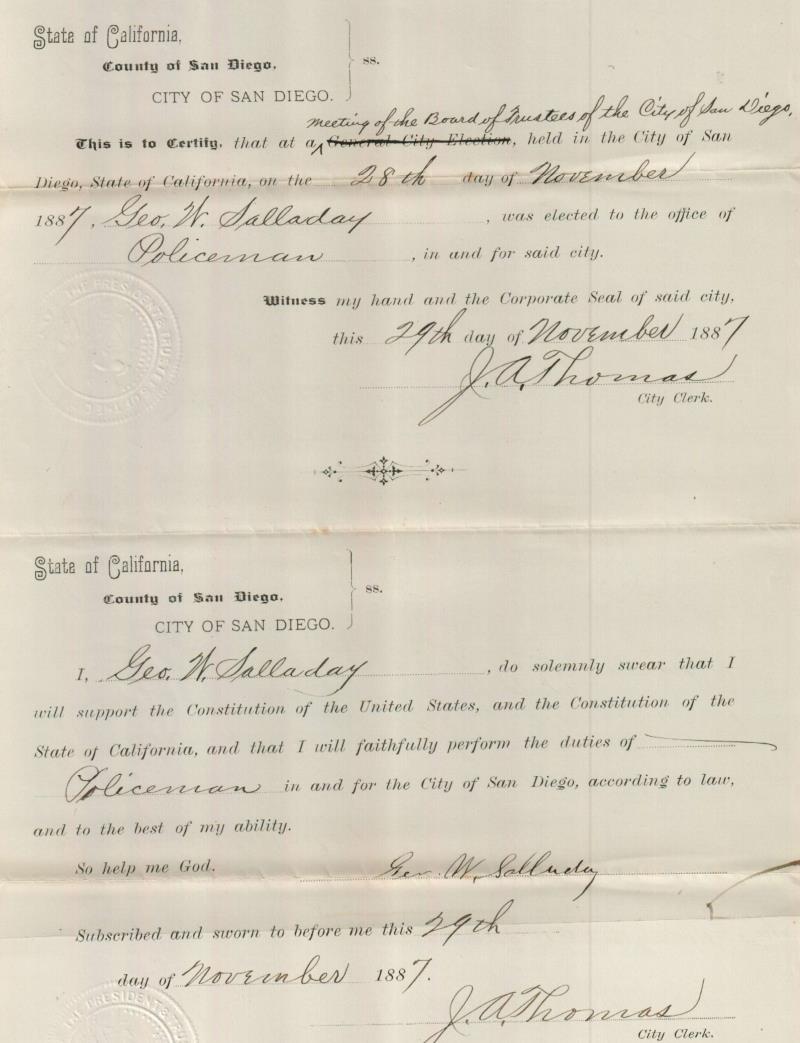 State of California,
County of San Diego,
CITY OF SAN DIEGO.
ss.
meeting of the Board of Trustees of the City of San Diego,
This is to Certify, that at a General City Election, held in the City of San
Diego, State of California, on the 28th day of November
1887, Geo. W. Salladay, was elected to the office of
Policeman, in and for said city.
Witness my hand and the Corporate Seal of said city,
this 29th day of November 1887
J. A. Thomas
City Clerk.
THE PRESIDENT & TRUST
State of California,
County of San Diego,
CITY OF SAN DIEGO.
ss.
I, Geo. W. Salladay, do solemnly swear that I
will support the Constitution of the United States, and the Constitution of the
State of California, and that I will faithfully perform the duties of
Policeman in and for the City of San Diego, according to law,
and to the best of my ability.
So help me God. Geo. W. Salladay
Subscribed and sworn to before me this 29th
day of November 1887.
J. A. Thomas
City Clerk.
THE PRESIDENT & TRU